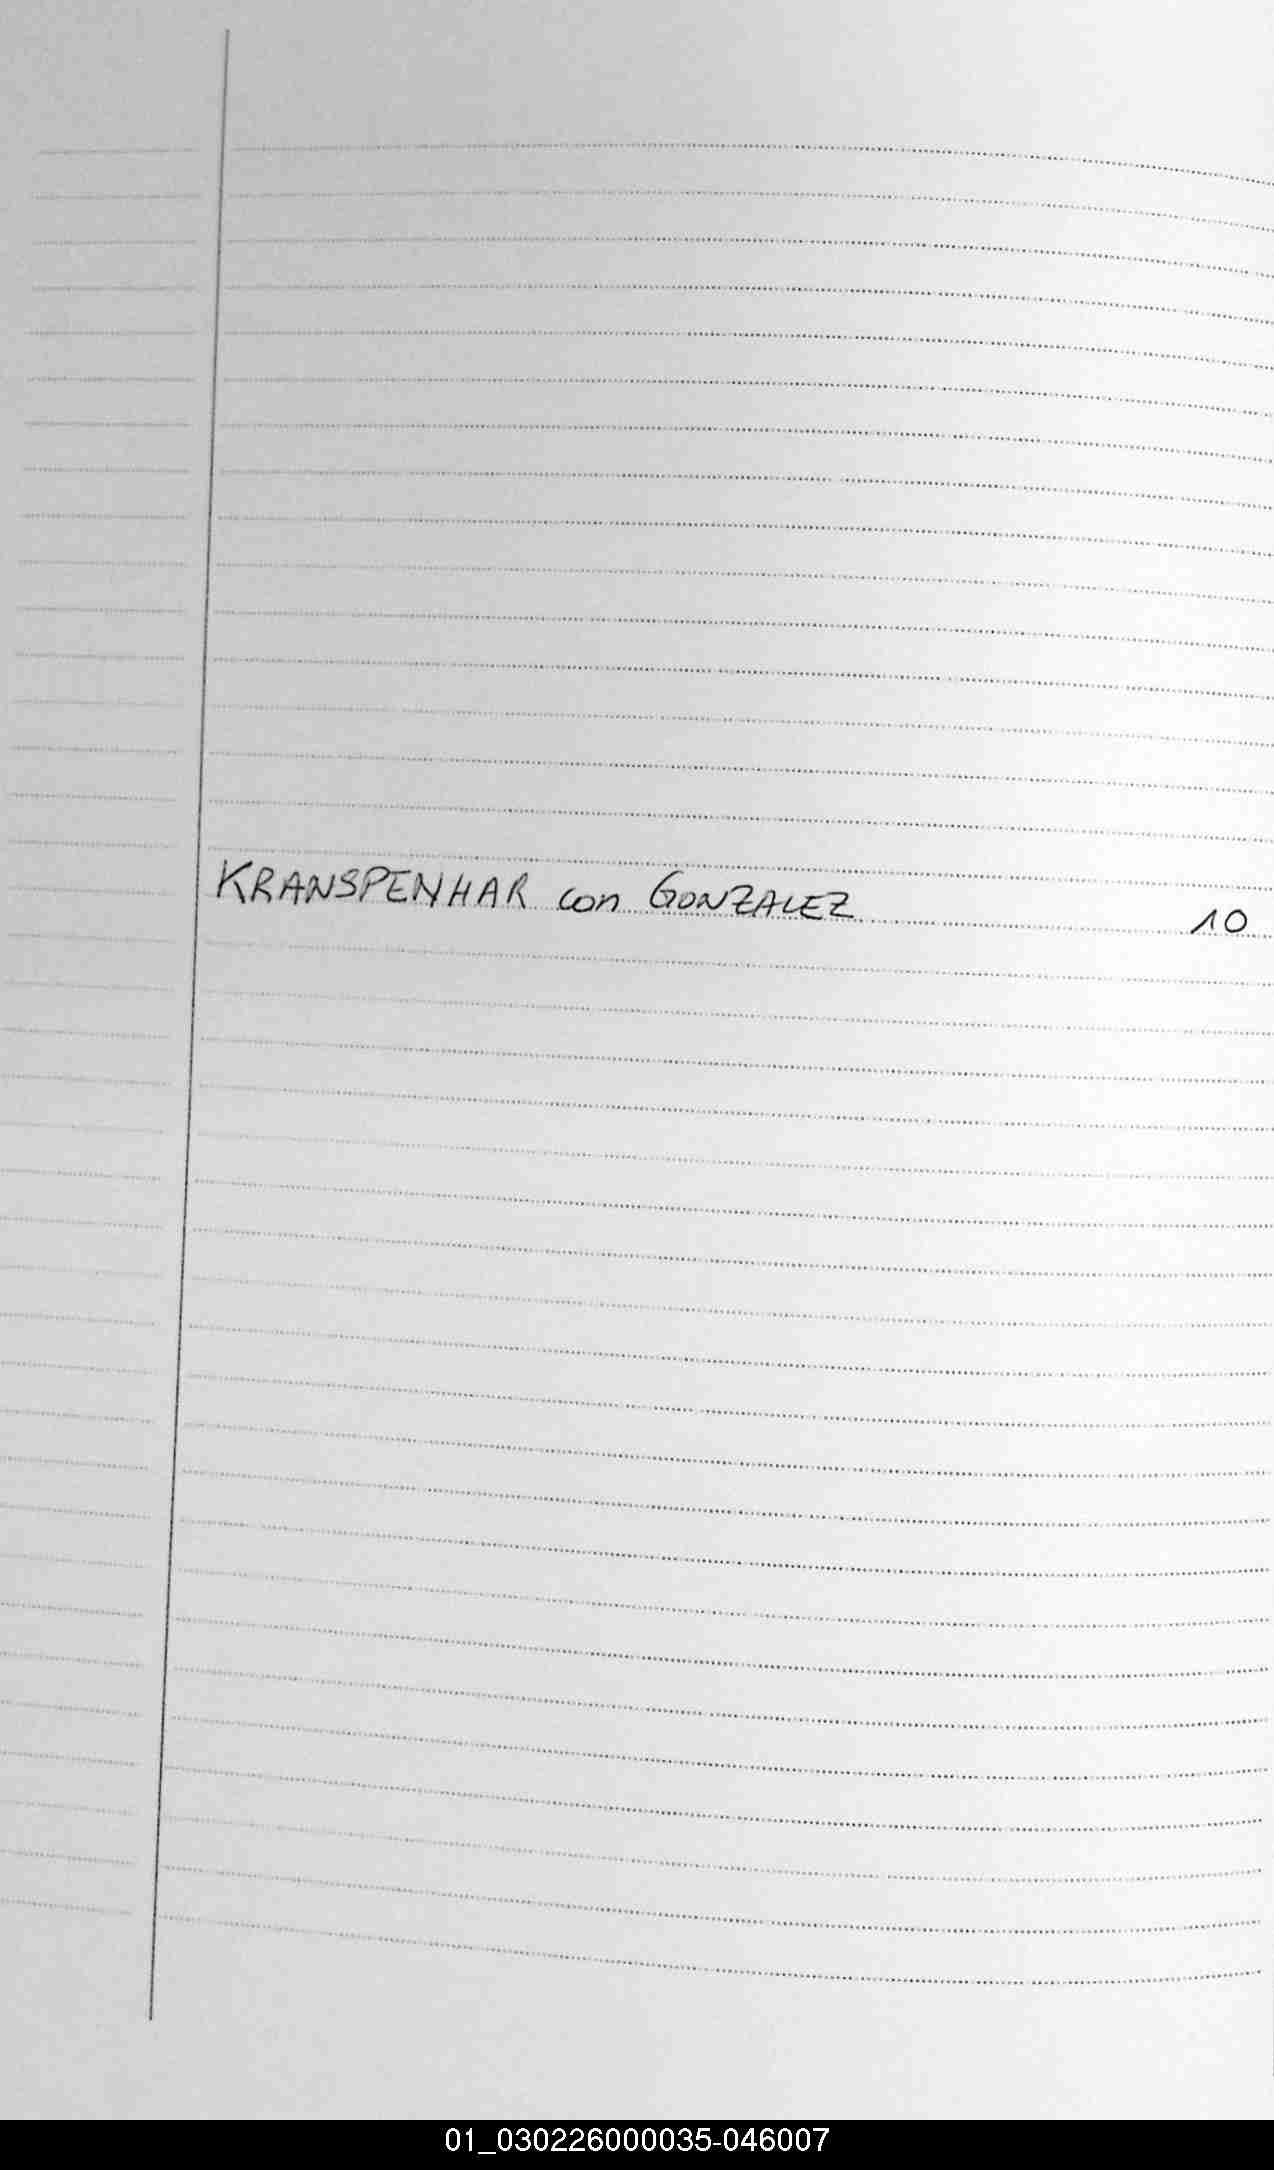 KRANSPENHAR con GONZALEZ 10
01_030226000035-046007